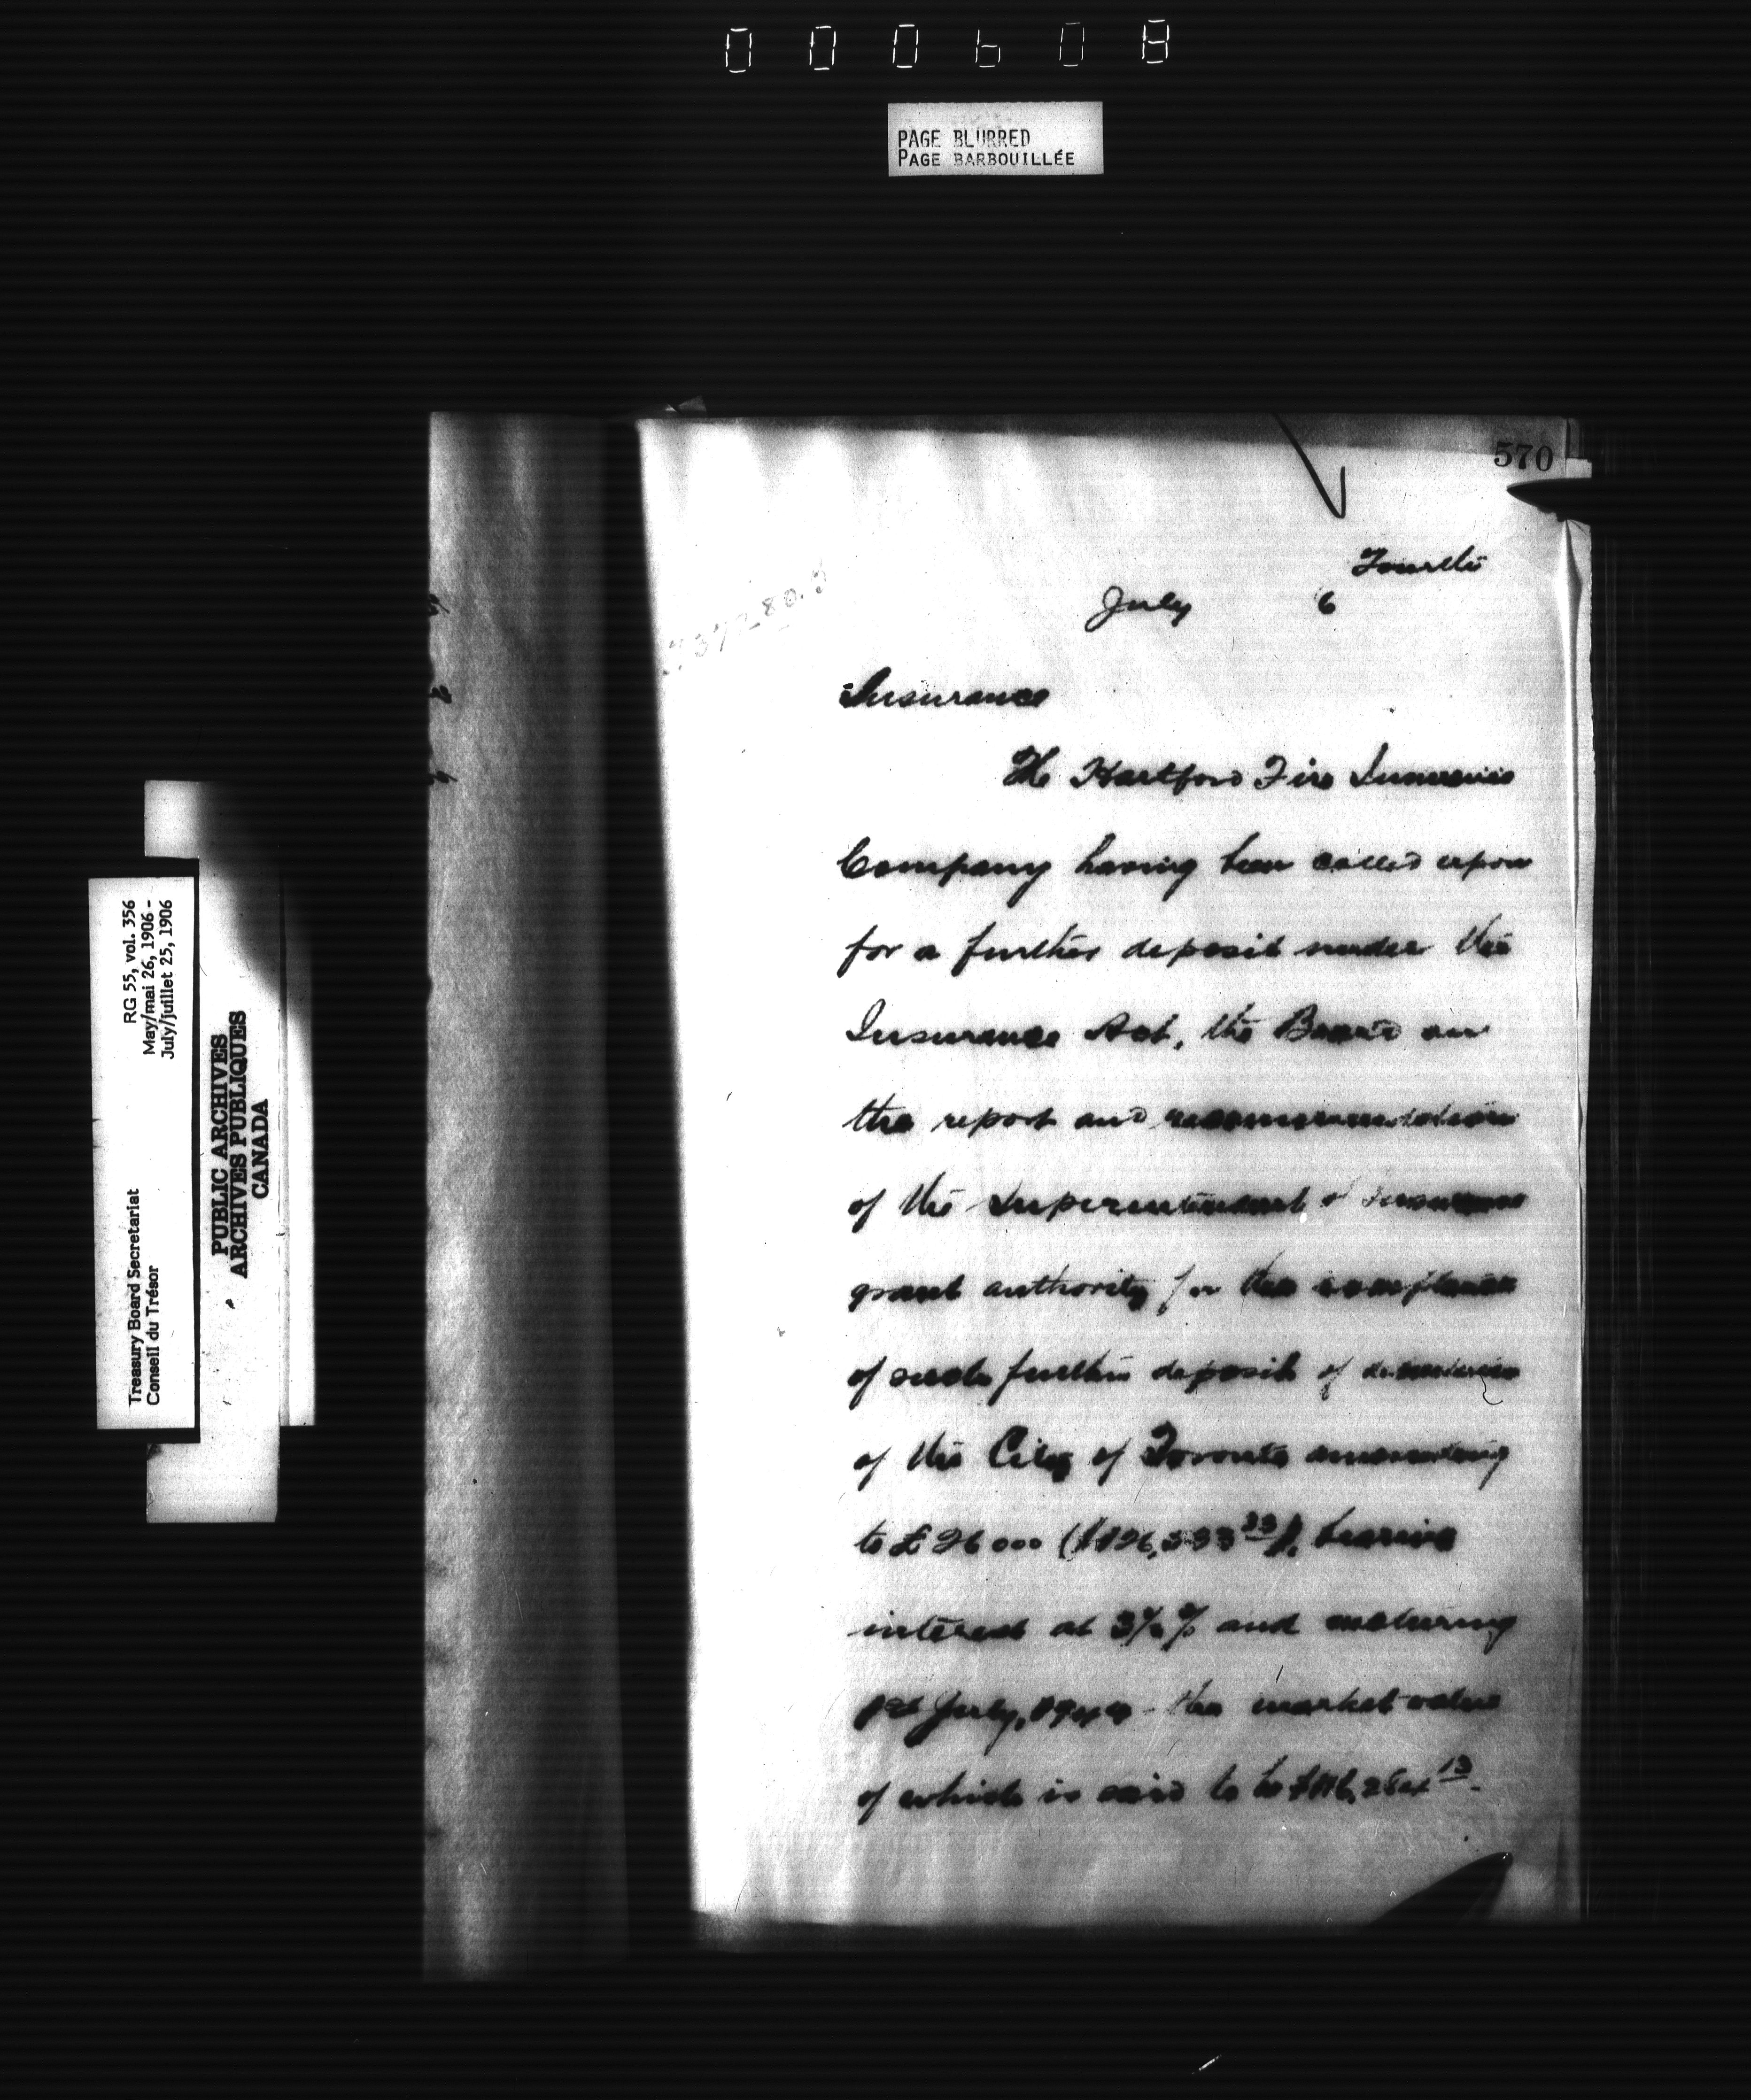 000608
PAGE BLURRED
PAGE BARBOUILLÉE
570
Fourth
July 6
Insurance
The Hartford Fire Insurance
Company having been called upon
for a further deposit under the
Insurance Act, the Board on
the report and recommendation
of the Superintendent of Insurance
grant authority for the acceptance
of such further deposit of debentures
of the City of Toronto amounting
to £26000 ($126,533 33), bearing
interest at 3½% and maturing
1st July, 1944 - the market value
of which is said to be
RG 55, vol. 356
May/mai 26, 1906 -
July/juillet 25, 1906
Treasury Board Secretariat
Conseil du Trésor
PUBLIC ARCHIVES
ARCHIVES PUBLIQUES
CANADA